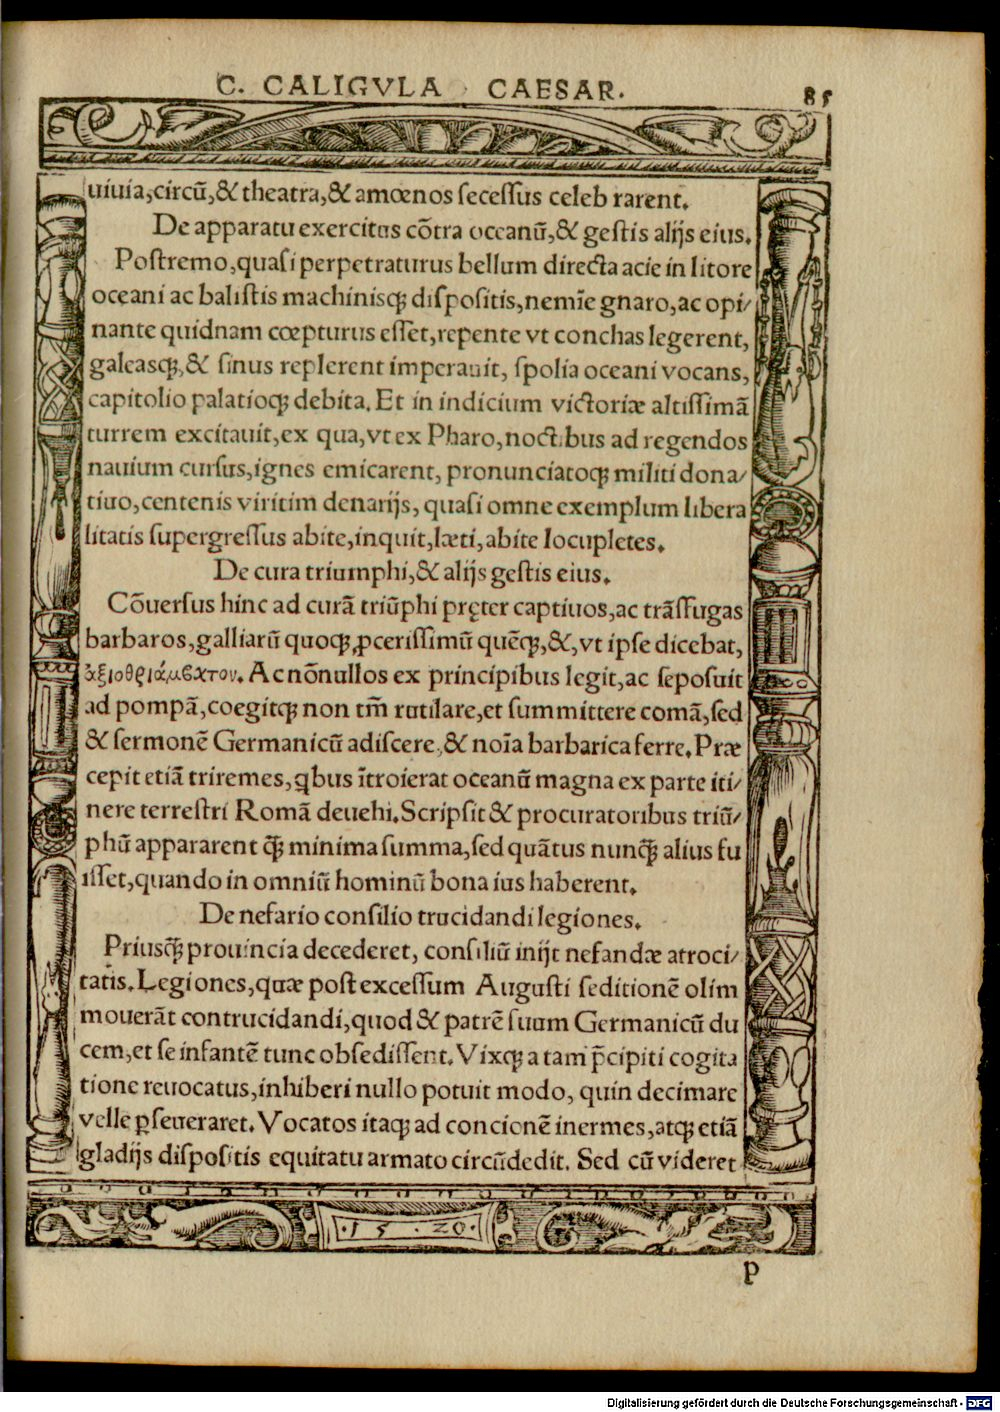 C. CALIGVLA CAESAR.
85
uiuia,circũ,& theatra,& amœnos secessus celeb rarent.
De apparatu exercitus cõtra oceanũ,& gestis alijs eius.
Postremo,quasi perpetraturus bellum directa acie in litore
oceani ac balistis machinisqꝫ dispositis,nemĩe gnaro,ac opi/
nante quidnam cœpturus esset,repente vt conchas legerent,
galeasqꝫ,& sinus replerent imperauit, spolia oceani vocans,
capitolio palatioqꝫ debita. Et in indicium victoriæ altissimã
turrem excitauit,ex qua,vt ex Pharo,noctibus ad regendos
nauium cursus,ignes emicarent, pronunciatoqꝫ militi dona/
tiuo,centenis viritim denarijs, quasi omne exemplum libera
litatis supergressus abite,inquit,læti,abite locupletes.
De cura triumphi,& alijs gestis eius.
Cõuersus hinc ad curã triũphi pręter captiuos,ac trãsfugas
barbaros,galliarũ quoqꝫ ꝓcerissimũ quẽqꝫ,&,vt ipse dicebat,
ἀξιοθριάμβατον. Ac nõnullos ex principibus legit,ac seposuit
ad pompã,coegitqꝫ non tm̃ rutilare,et summittere comã,sed
& sermonẽ Germanicũ adiscere,& noĩa barbarica ferre. Præ
cepit etiã triremes,qͥbus ĩtroierat oceanũ magna ex parte iti/
nere terrestri Romã deuehi. Scripsit & procuratoribus triũ/
phũ appararent qꝫ̃ minima summa,sed quãtus nunqꝫ̃ alius fu
isset,quando in omniũ hominũ bona ius haberent.
De nefario consilio trucidandi legiones.
Priusqꝫ̃ prouincia decederet, consiliũ inijt nefandæ atroci/
tatis. Legiones,quæ post excessum Augusti seditionẽ olim
mouerãt contrucidandi,quod & patrẽ suum Germanicũ du
cem,et se infantẽ tunc obsedissent. Vixqꝫ a tam p̃cipiti cogita
tione reuocatus,inhiberi nullo potuit modo, quin decimare
velle ꝑseueraret. Vocatos itaqꝫ ad concionẽ inermes,atqꝫ etiã
gladijs dispositis equitatu armato circũdedit. Sed cũ videret
·15·20·
p
Digitalisierung gefördert durch die Deutsche Forschungsgemeinschaft - DFG